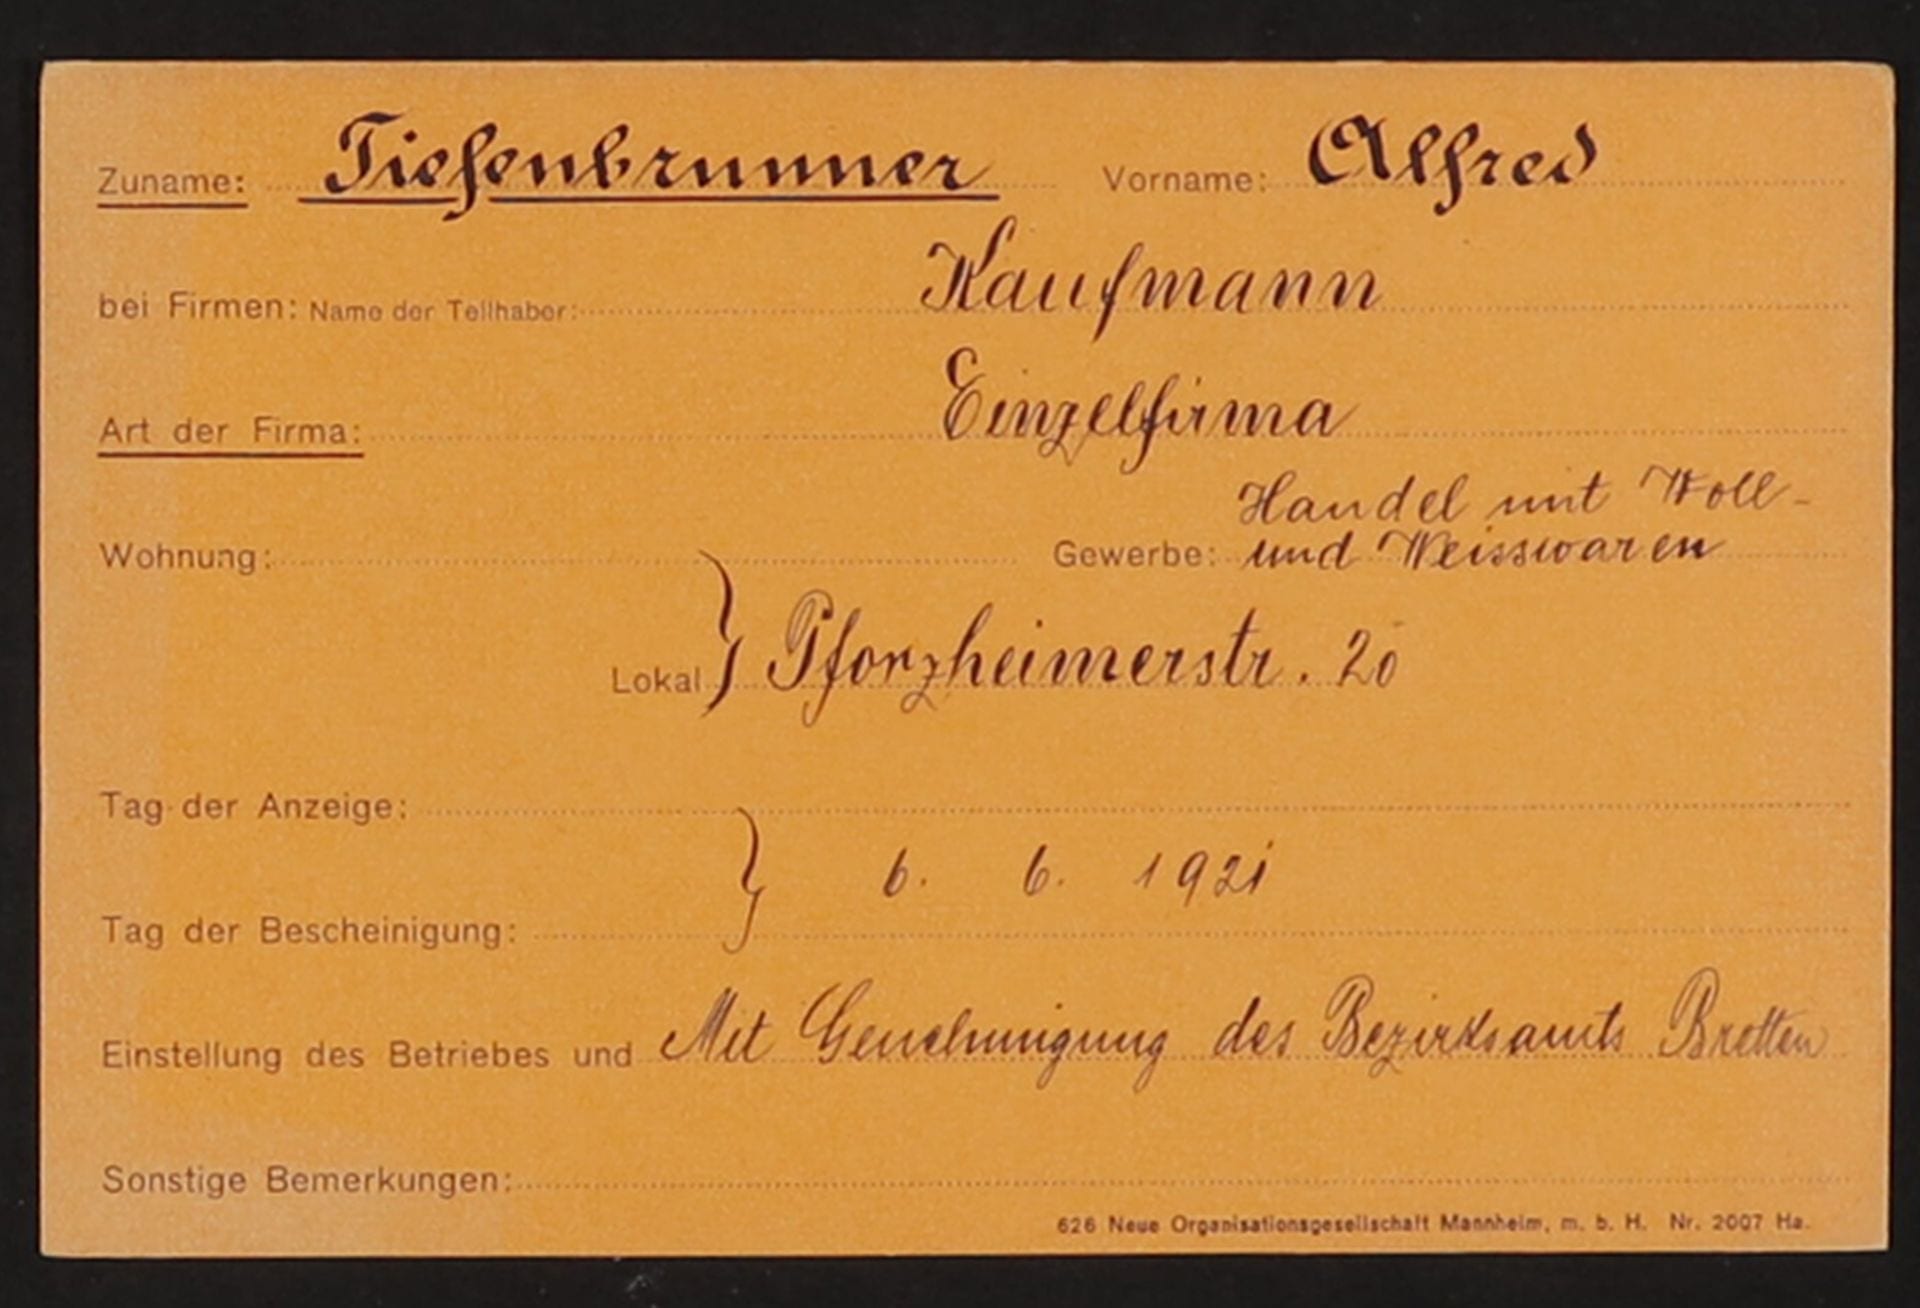 Zuname: Tiefenbrunner Vorname: Alfred
bei Firmen: Name der Teilhaber: Kaufmann
Art der Firma: Einzelfirma
Handel mit Woll-
Wohnung: Gewerbe: und Weisswaren
Lokal } Pforzheimerstr. 20
Tag der Anzeige:
} 6. 6. 1921
Tag der Bescheinigung:
Einstellung des Betriebes und Mit Genehmigung des Bezirksamts Bretten
Sonstige Bemerkungen:
626 Neue Organisationsgesellschaft Mannheim, m. b. H. Nr. 2007 Ha.